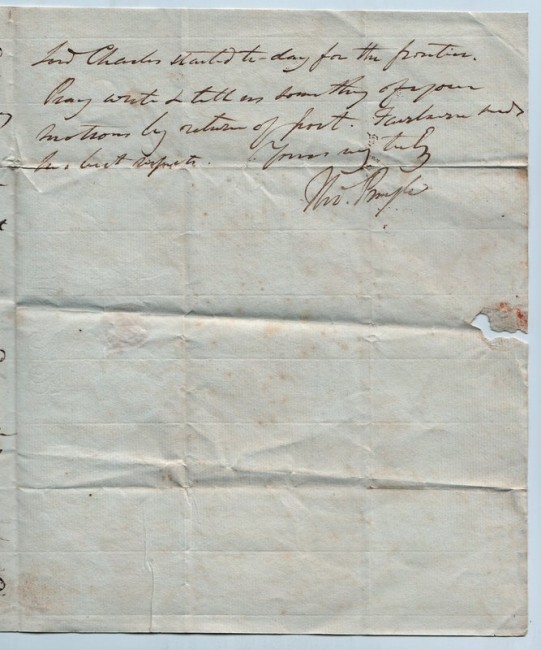 Lord Charles started to-day for the frontier.
Pray write & tell us something of your
motions by return of post. Fairbairn sends
his best respects. Yours very truly
Tho. Pringle